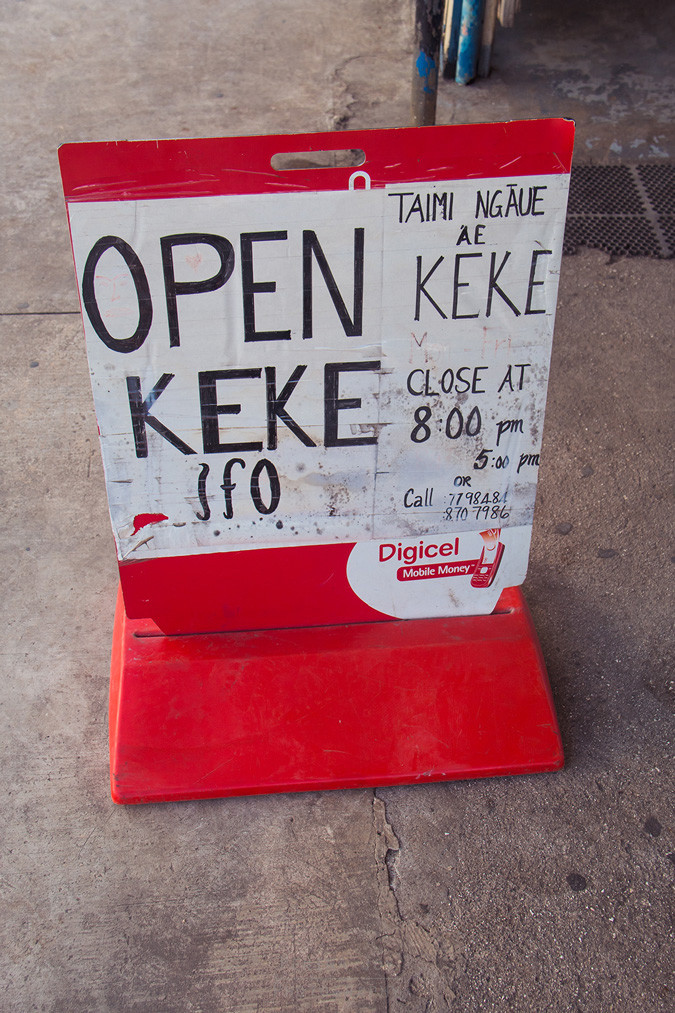 OPEN
KEKE
IFO
TAIMI NGĀUE
AE
KEKE
CLOSE AT
8:00 pm
5:00 pm
OR
Call 7798481
870 7986
Digicel
Mobile Money™